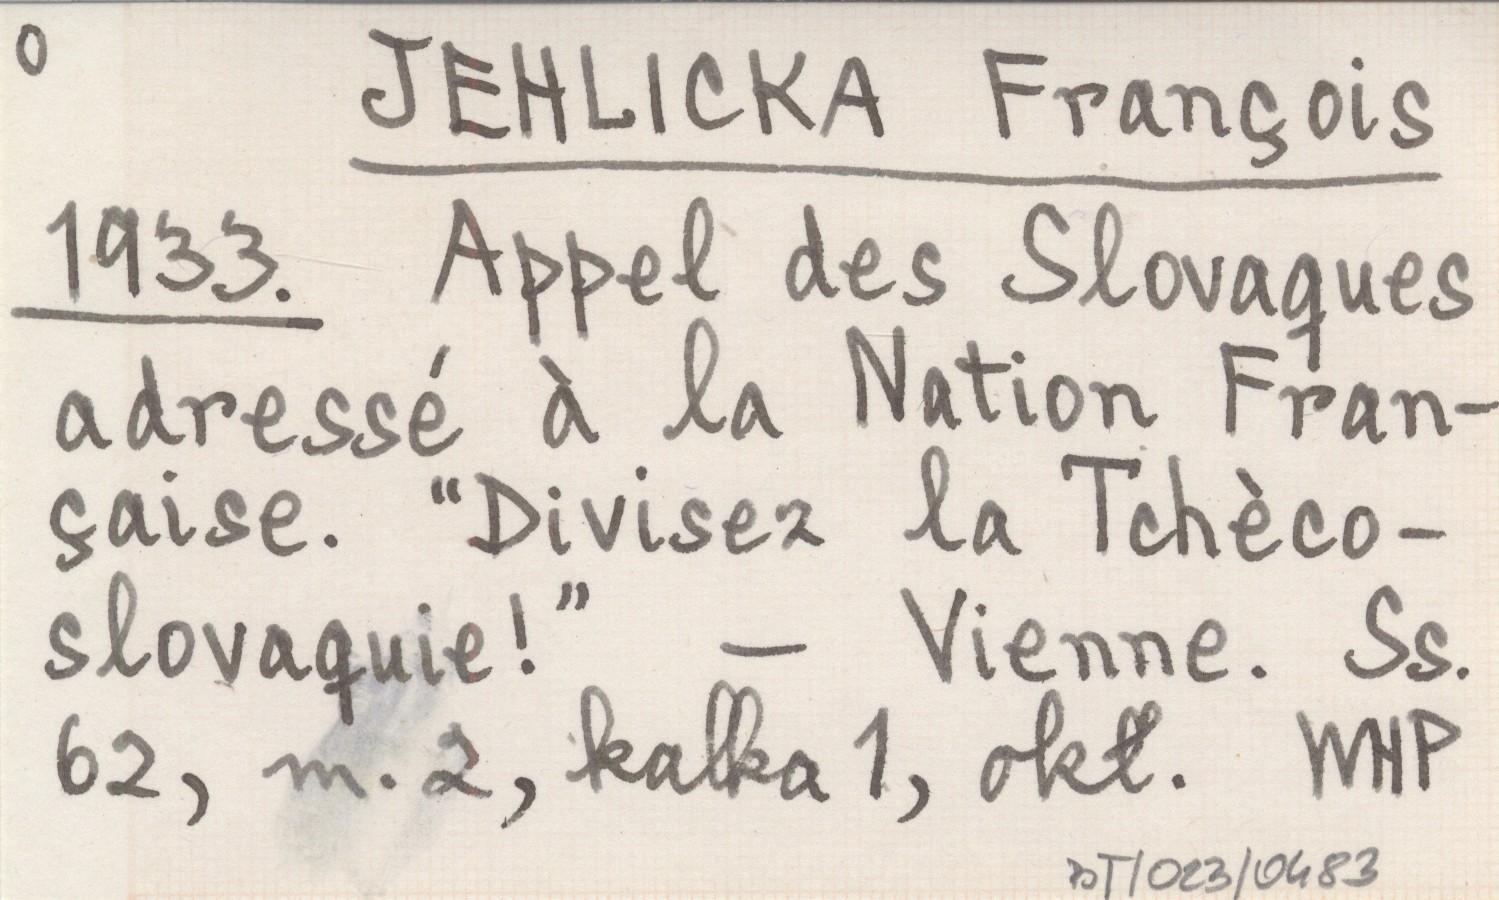 0
JEHLICKA François
1933. Appel des Slovaques
adressé à la Nation Fran-
çaise. “Divisez la Tchèco-
slovaquie!” — Vienne. Ss.
62, m. 2, kalka 1, okł. WHP
DT/023/0483